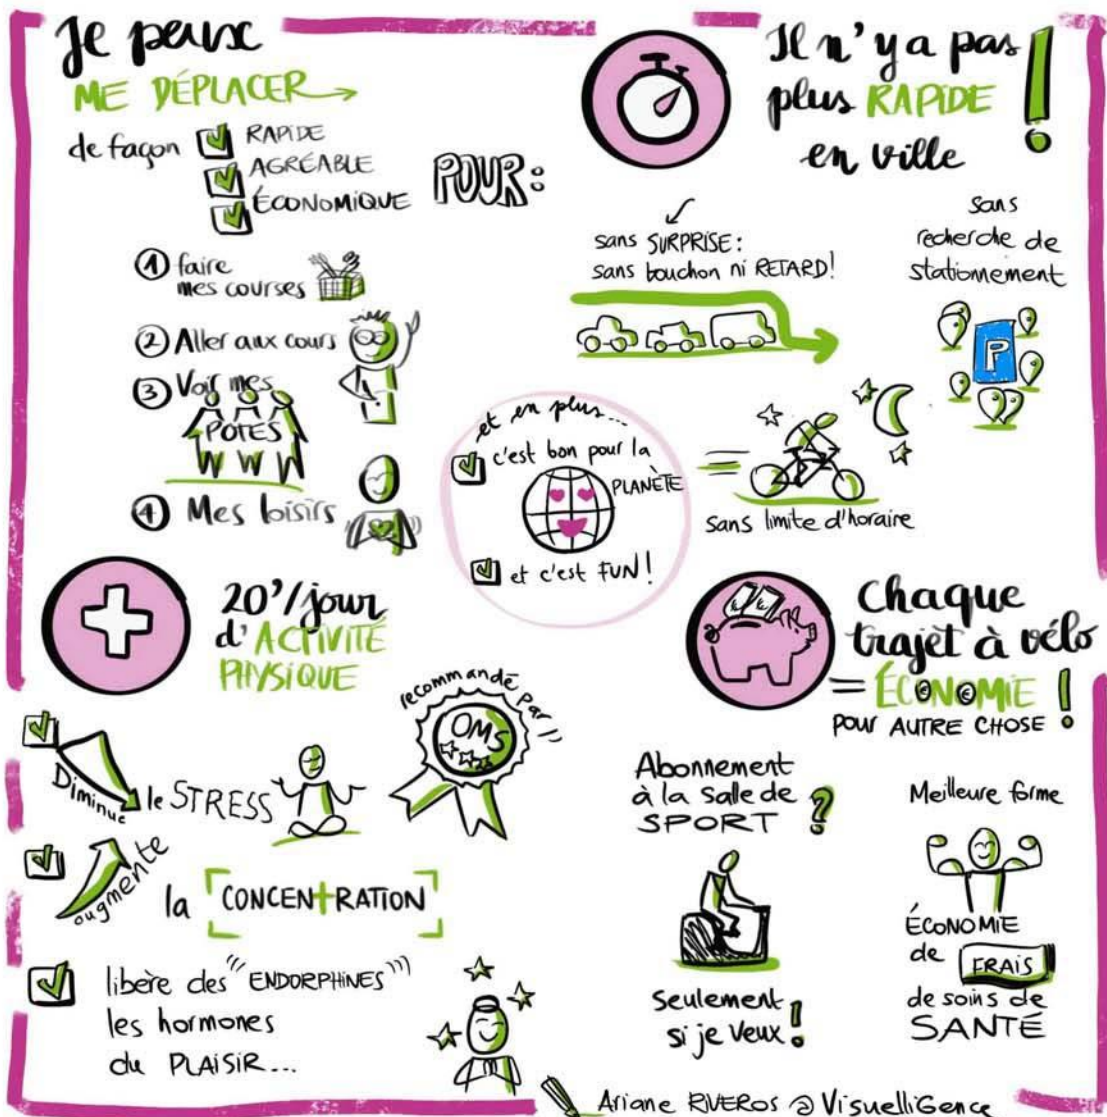 Je peux
ME DÉPLACER
de façon
RAPIDE
AGRÉABLE
ÉCONOMIQUE
POUR:
1 faire
mes courses
2 Aller aux cours
3 Voir mes
POTES
4 Mes loisirs
Il n'y a pas
plus RAPIDE
en ville !
sans SURPRISE:
sans bouchon ni RETARD!
sans
recherche de
stationnement
P
sans limite d'horaire
et en plus...
c'est bon pour la
PLANÈTE
et c'est FUN!
20'/jour
d'ACTIVITÉ
PHYSIQUE
recommandé par l'
OMS
Diminue le STRESS
augmente
la CONCENTRATION
libère des "ENDORPHINES"
les hormones
du PLAISIR...
Chaque
trajet à vélo
= ÉCONOMIE !
POUR AUTRE CHOSE
Abonnement
à la salle de
SPORT ?
Seulement
si je veux !
Meilleure forme
ÉCONOMIE
de FRAIS
de soins de
SANTÉ
Ariane RIVEROS @ VisuelliGence